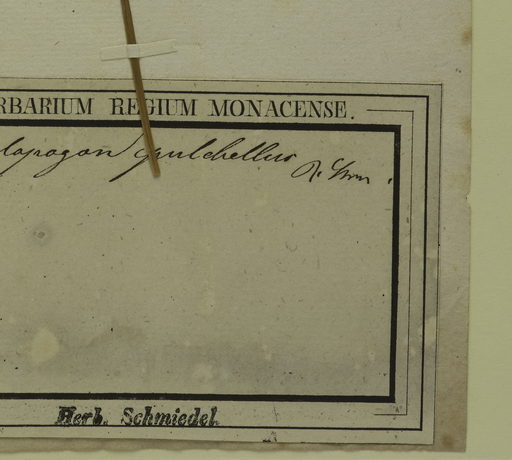 RBARIUM REGIUM MONACENSE.
lopogon pulchellus R. Brn.
Herb. Schmiedel.